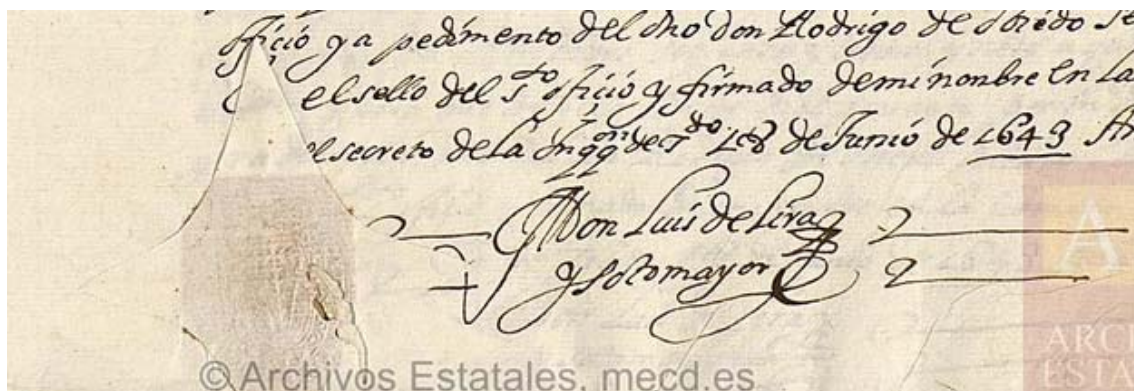 ofiçio y a pedimento del dho don Rodrigo de obiedo
el sello del Sto ofiçio y firmado de mi nonbre En La
el secreto de La Ynqqon de Tdo de Junio de 1643
Don Luis de Lira
y Sotomayor
© Archivos Estatales, mecd.es
A
ARC
ESTA